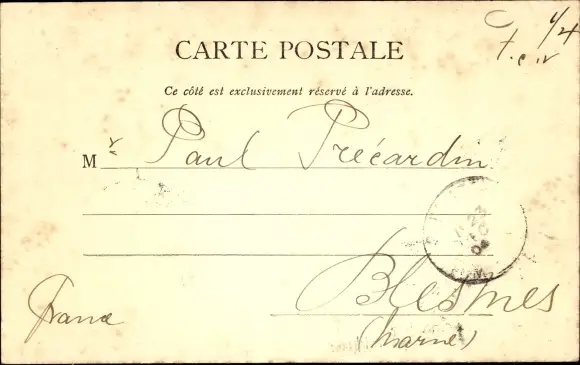 CARTE POSTALE
Ce côté est exclusivement réservé à l'adresse.
Mr Paul Précardin
Blesmes
(Marne)
France